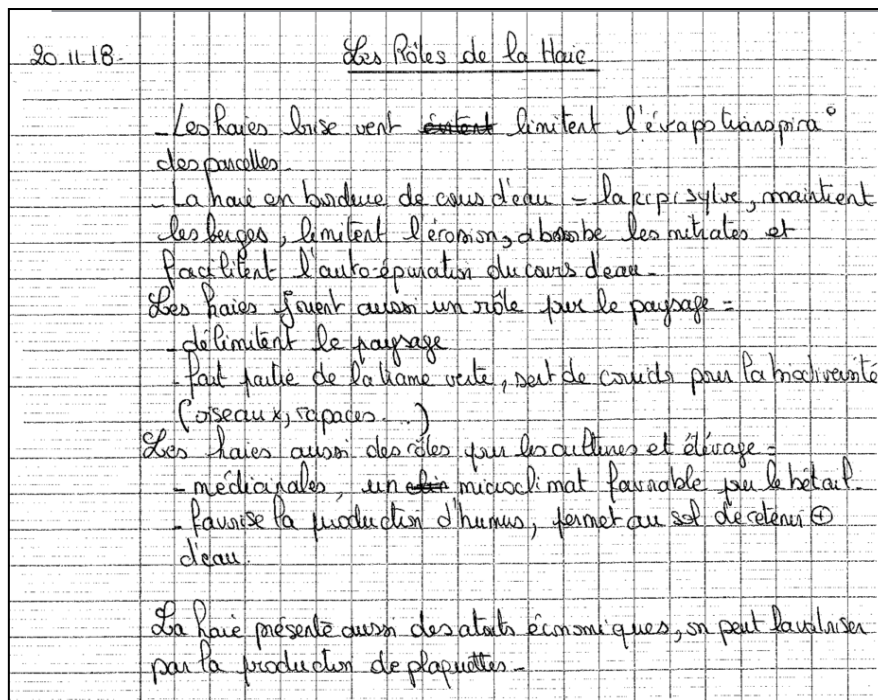 20.11.18.
Les Rôles de la Haie
- Les haies brise vent limitent l'évapotranspira°
des parcelles.
- La haie en bordure de cours d'eau = la ripisylve, maintient
les berges, limitent l'érosion, absorbe les nitrates et
facilitent l'auto-épuration du cours d'eau -
Les haies jouent aussi un rôle pour le paysage =
- délimitent le paysage
- fait partie de la trame verte, sert de corridor pour la biodiversité
(oiseaux, rapaces...)
Les haies aussi des rôles pour les cultures et élevage =
- médicinales, un microclimat favorable pour le bétail.
- favorise la production d'humus, permet au sol de retenir ⊕
d'eau.
La haie présente aussi des atouts économiques, on peut la valoriser
par la production de plaquettes -